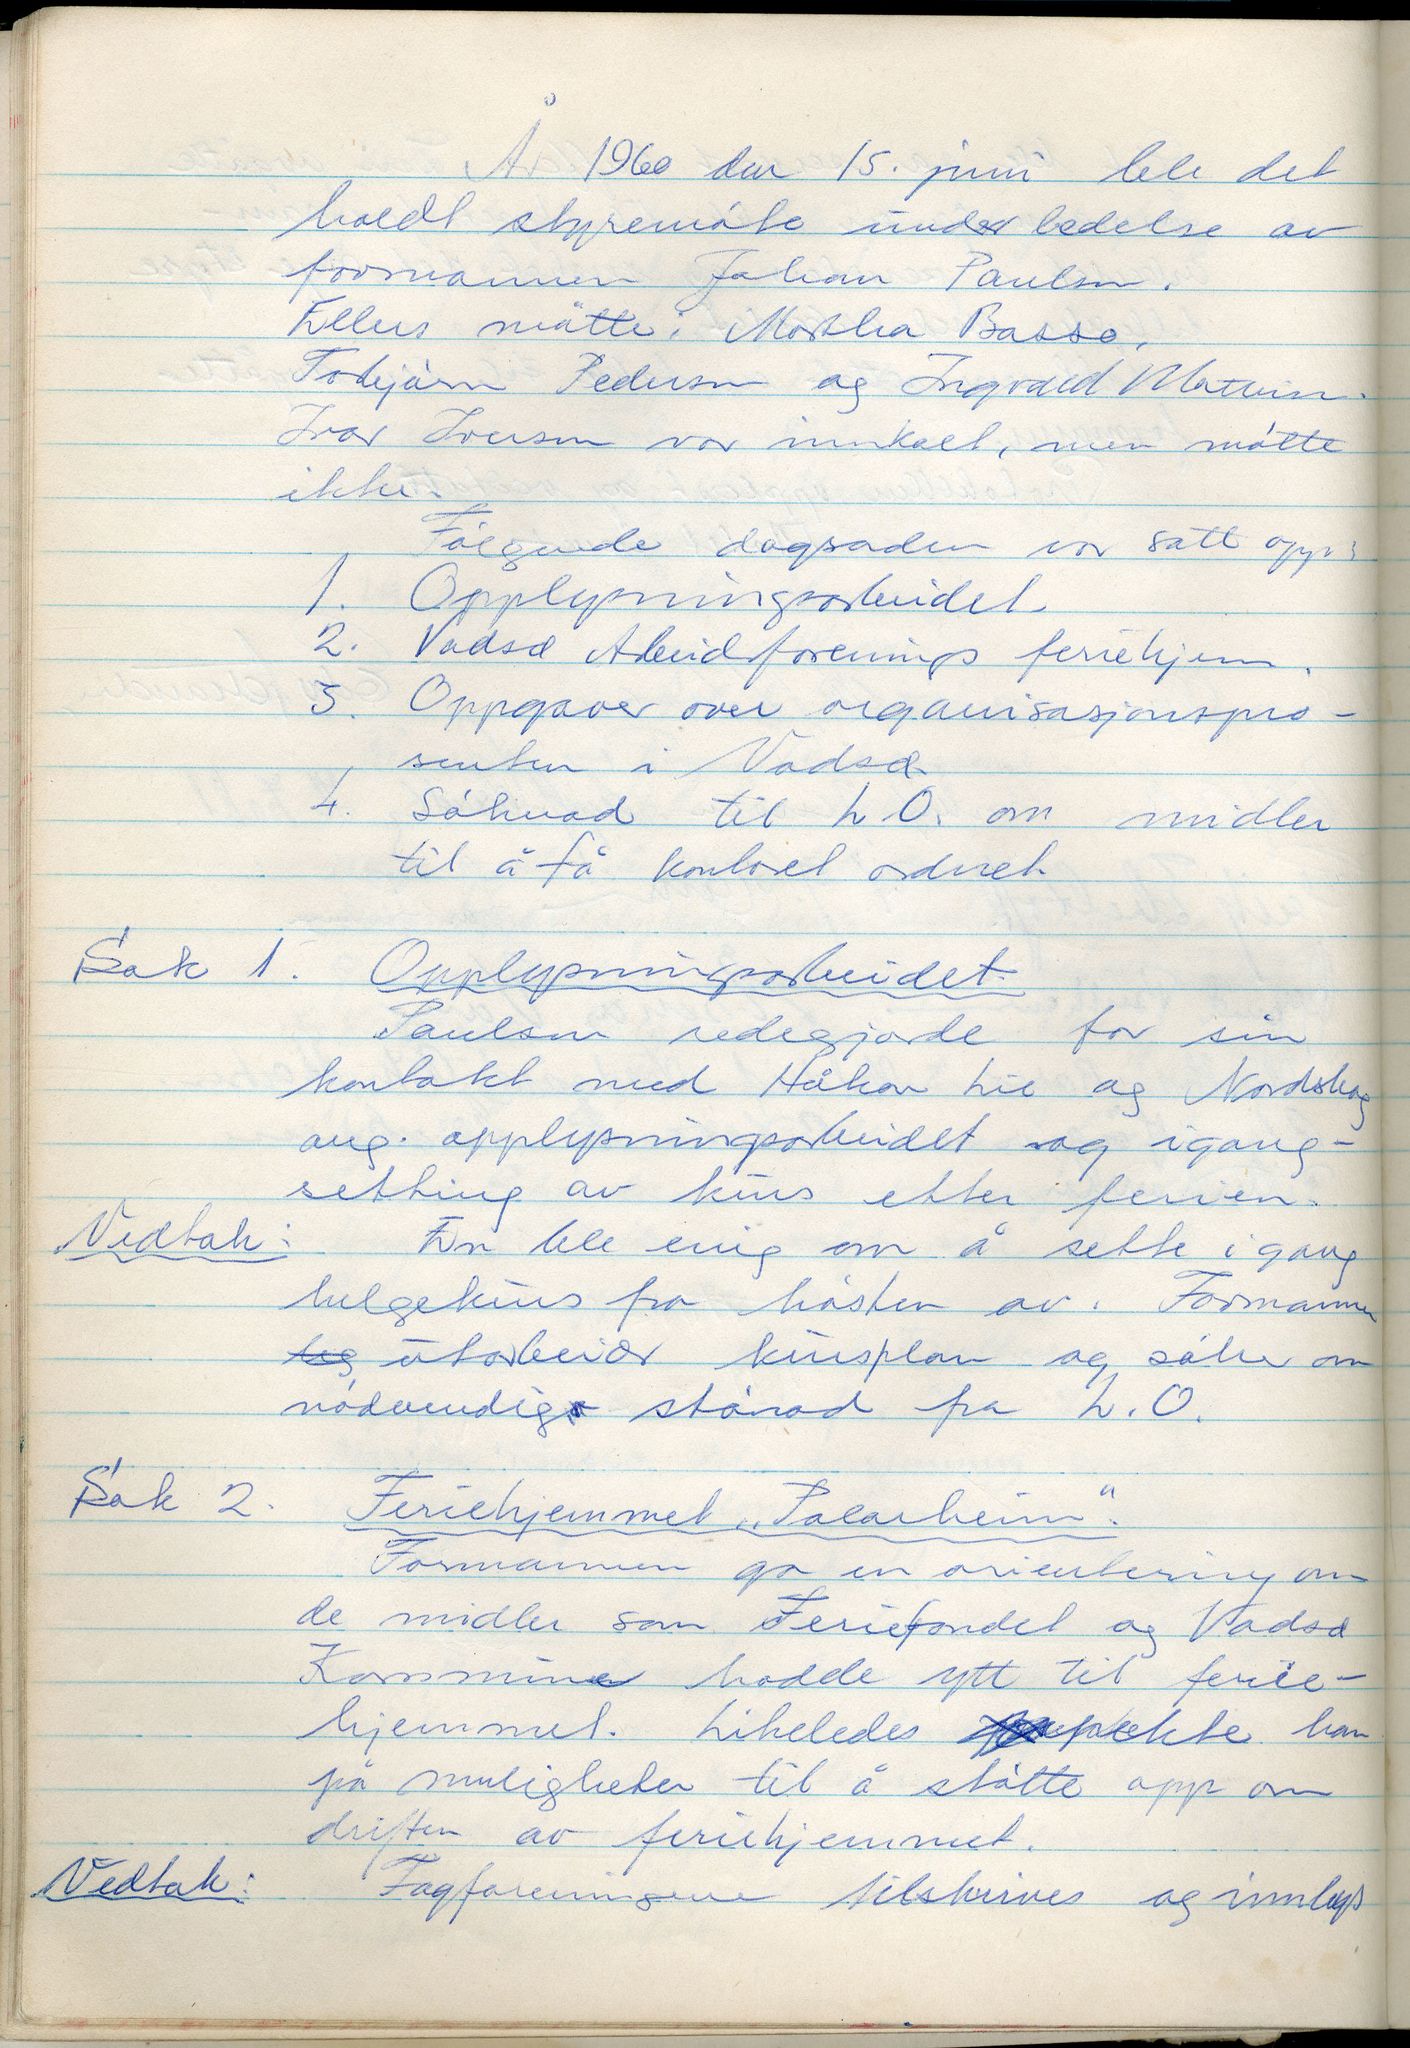 År 1960 den 15. juni ble det
holdt styremöte under ledelse av
formannen Johan Paulsen.
Ellers mötte: Martha Basso,
Torbjörn Pedersen og Ingvald Mathisen.
Ivar Iversen var innkalt, men mötte
ikke.
Fölgende dagsorden var satt opp:
1. Opplysningsarbeidet
2. Vadsø Arbeidforenings feriehjem.
3. Oppgaver over organisasjonspro-
senten i Vadsø
4. Söknad til L.O. om midler
til å få kontoret ordnet
Sak 1. Opplysningsarbeidet.
Paulsen redegjorde for sin
kontakt med Håkon Lie og Nordskog
ang. opplysningsarbeidet og igang-
setting av kurs etter ferien.
Vedtak: En ble enig om å sette i gang
helgekurs fra hösten av. Formannen
utarbeider kursplan og söker om
nödvendig stönad fra L.O.
Sak 2. Feriehjemmet „Polarheim“.
Formannen ga en orientering om
de midler som Feriefondet og Vadsø
Kommune hadde ytt til ferie-
hjemmet. Likeledes pekte han
på muligheter til å stötte opp om
driften av feriehjemmet.
Vedtak: Fagforeningene tilskrives og innbys